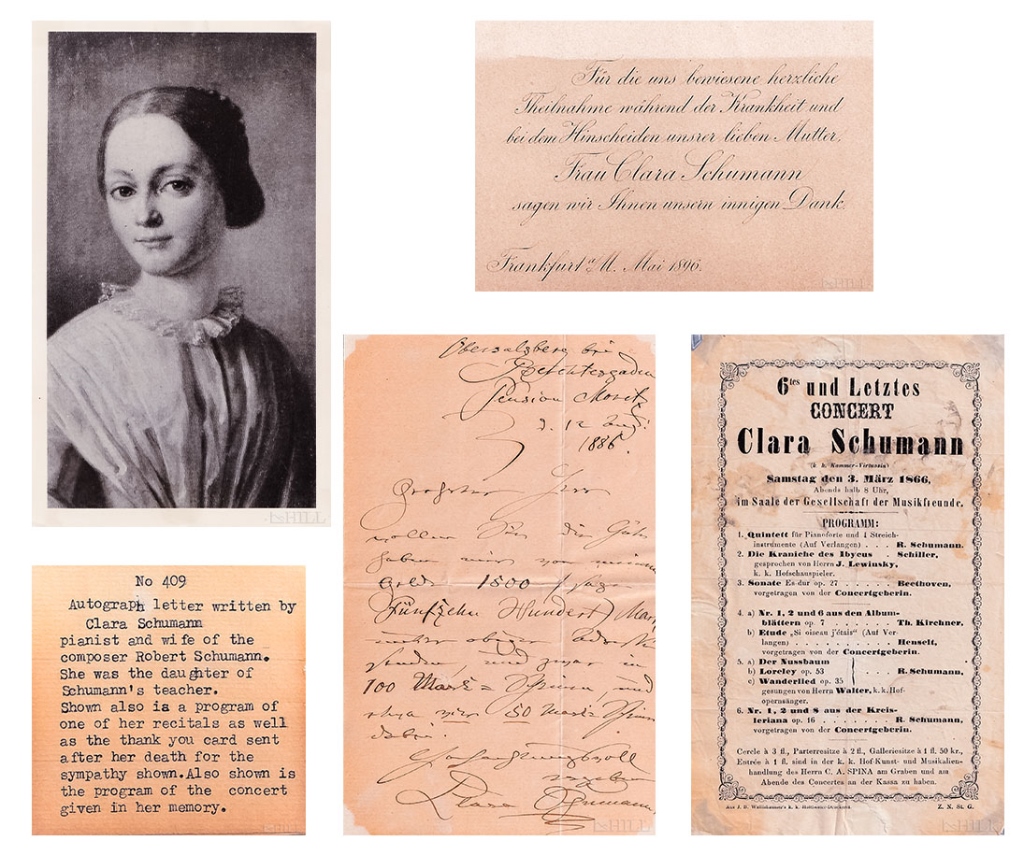 Für die uns bewiesene herzliche
Theilnahme während der Krankheit und
bei dem Hinscheiden unsrer lieben Mutter,
Frau Clara Schumann
sagen wir Ihnen unsern innigen Dank.
Frankfurt a/M. Mai 1896.
Obersalzberg bei
Berchtesgaden
Pension Moritz
d. 12 Aug:
1886.
Geehrter Herr
wollen Sie die Güte
haben mir von meinem
Gelde 1500 (sage
Fünfzehn Hundert) Mark
unter obiger
senden, und zwar in
100 Mark = Scheinen, und
etwa 50 Mark
dabei.
Hochachtungsvoll
ergeben
Clara Schumann
6tes und Letztes
CONCERT
Clara Schumann
(k. k. Kammer-Virtuosin)
Samstag den 3. März 1866,
Abends halb 8 Uhr,
im Saale der Gesellschaft der Musikfreunde.
PROGRAMM:
1. Quintett für Pianoforte und 4 Streich-
instrumente (Auf Verlangen) . . . . R. Schumann.
2. Die Kraniche des Ibycus . . Schiller,
gesprochen von Herrn J. Lewinsky,
k. k. Hofschauspieler.
3. Sonate Es-dur op. 27 . . . . . . . Beethoven,
vorgetragen von der Concertgeberin.
4. a) Nr. 1, 2 und 6 aus den Album-
blättern op. 7 . . . . . Th. Kirchner,
b) Etude „Si oiseau j'étais“ (Auf Ver-
langen) . . . . . . . . . Henselt,
vorgetragen von der Concertgeberin.
5. a) Der Nussbaum
b) Loreley op. 53 . . . . . R. Schumann,
c) Wanderlied op. 35
gesungen von Herrn Walter, k. k. Hof-
opernsänger.
6. Nr. 1, 2 und 8 aus der Kreis-
leriana op. 16 . . . . . . . R. Schumann,
vorgetragen von der Concertgeberin.
Cercle à 3 fl., Parterresitze à 2 fl., Galleriesitze à 1 fl. 50 kr.,
Entrée à 1 fl. sind in der k. k. Hof-Kunst- und Musikalien-
handlung des Herrn C. A. SPINA am Graben und am
Abende des Concertes an der Kassa zu haben.
Aus J. B. Wallishausser's k. k. Hoftheater-Druckerei.
Z. N. St. G.
No 409
Autograph letter written by
Clara Schumann
pianist and wife of the
composer Robert Schumann.
She was the daughter of
Schumann's teacher.
Shown also is a program of
one of her recitals as well
as the thank you card sent
after her death for the
sympathy shown.Also shown is
the program of the concert
given in her memory.
HILL